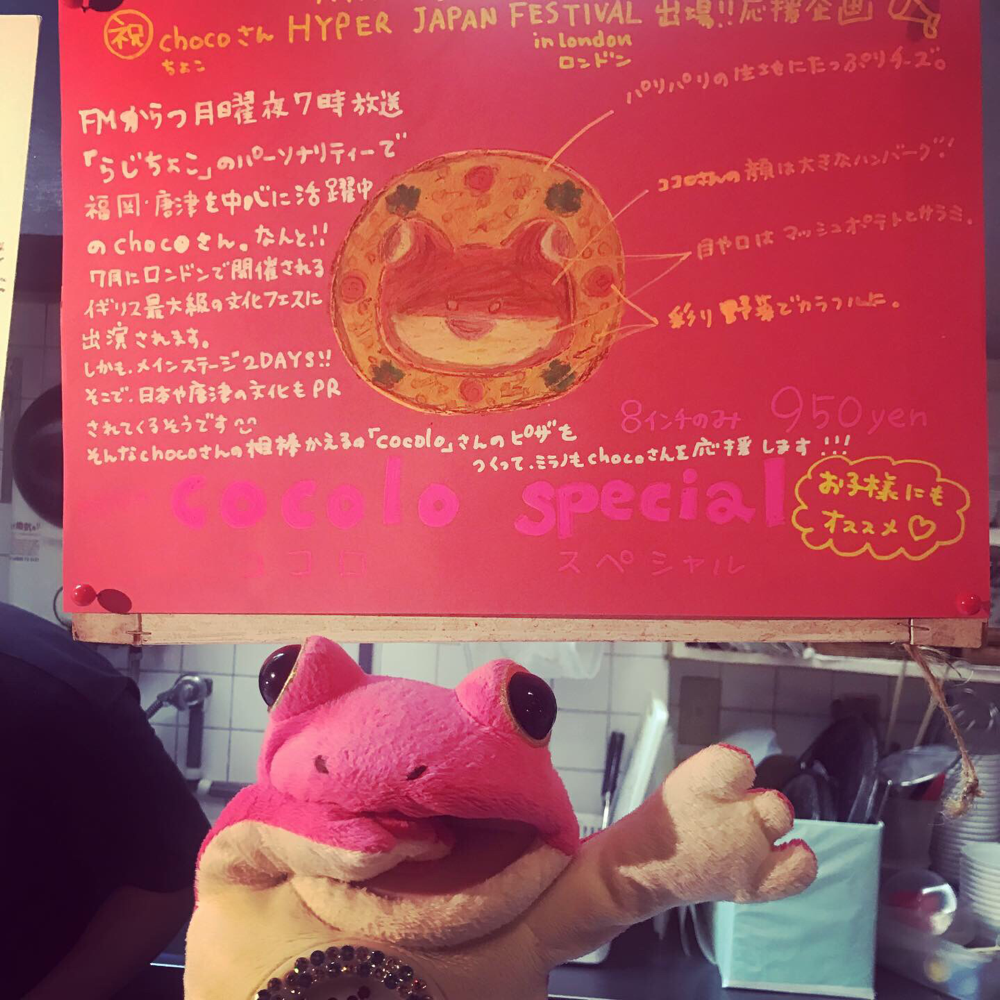 祝 chocoさん HYPER JAPAN FESTIVAL 出場!!応援企画
ちょこ in London
ロンドン
FMからつ月曜夜7時放送
「らじちょこ」のパーソナリティーで
福岡・唐津を中心に活躍中
のchocoさん。なんと!!
7月にロンドンで開催される
イギリス最大級の文化フェスに
出演されます。
しかも、メインステージ2DAYS!!
そこで、日本や唐津の文化もPR
されてくるそうです
そんなchocoさんの相棒かえるの「cocolo」さんのピザを
つくって、ミラノもchocoさんを応援します!!!
パリパリの生地にたっぷりチーズ。
ココロさんの顔は大きなハンバーグ!
目や口はマッシュポテトとサラミ。
彩り野菜でカラフルに。
8インチのみ 950yen
cocolo special
ココロ スペシャル
お子様にも
オススメ♡